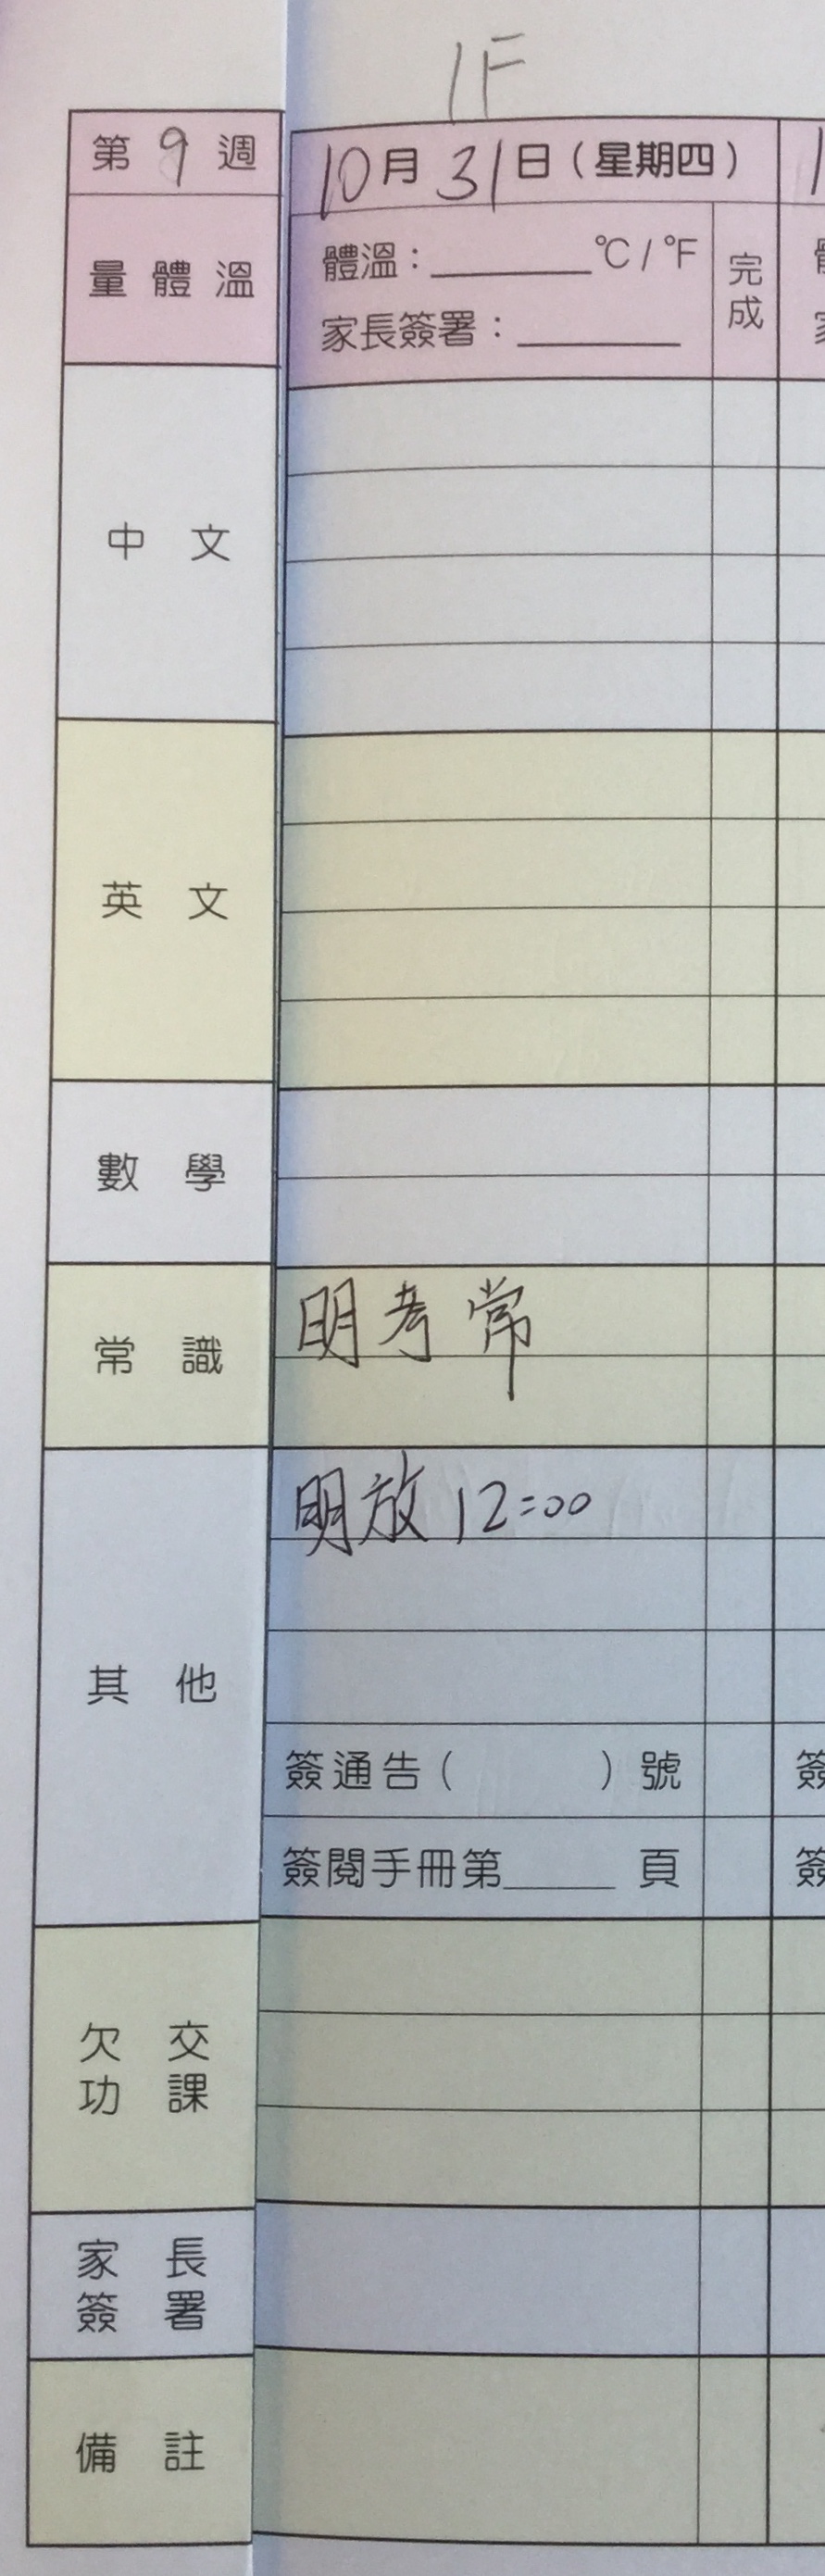 1F
第 9 週
10月31日(星期四)
量體溫
體溫:______℃/℉
家長簽署:______
完成
中文
英文
數學
常識
明考常
其他
明放12:00
簽通告( )號
簽閱手冊第____頁
欠交
功課
家長
簽署
備註